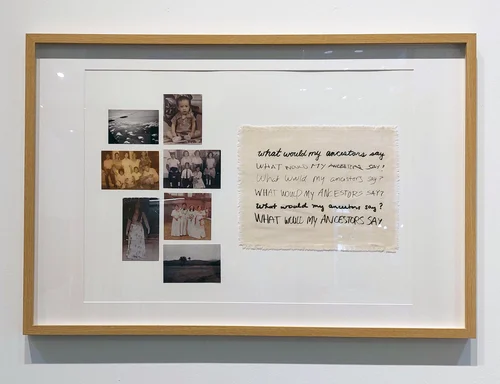 what would my ancestors say
WHAT WOULD MY ANCESTORS SAY?
What would my ancestors say?
WHAT WOULD MY ANCESTORS SAY?
What would my ancestors say?
WHAT WOULD MY ANCESTORS SAY